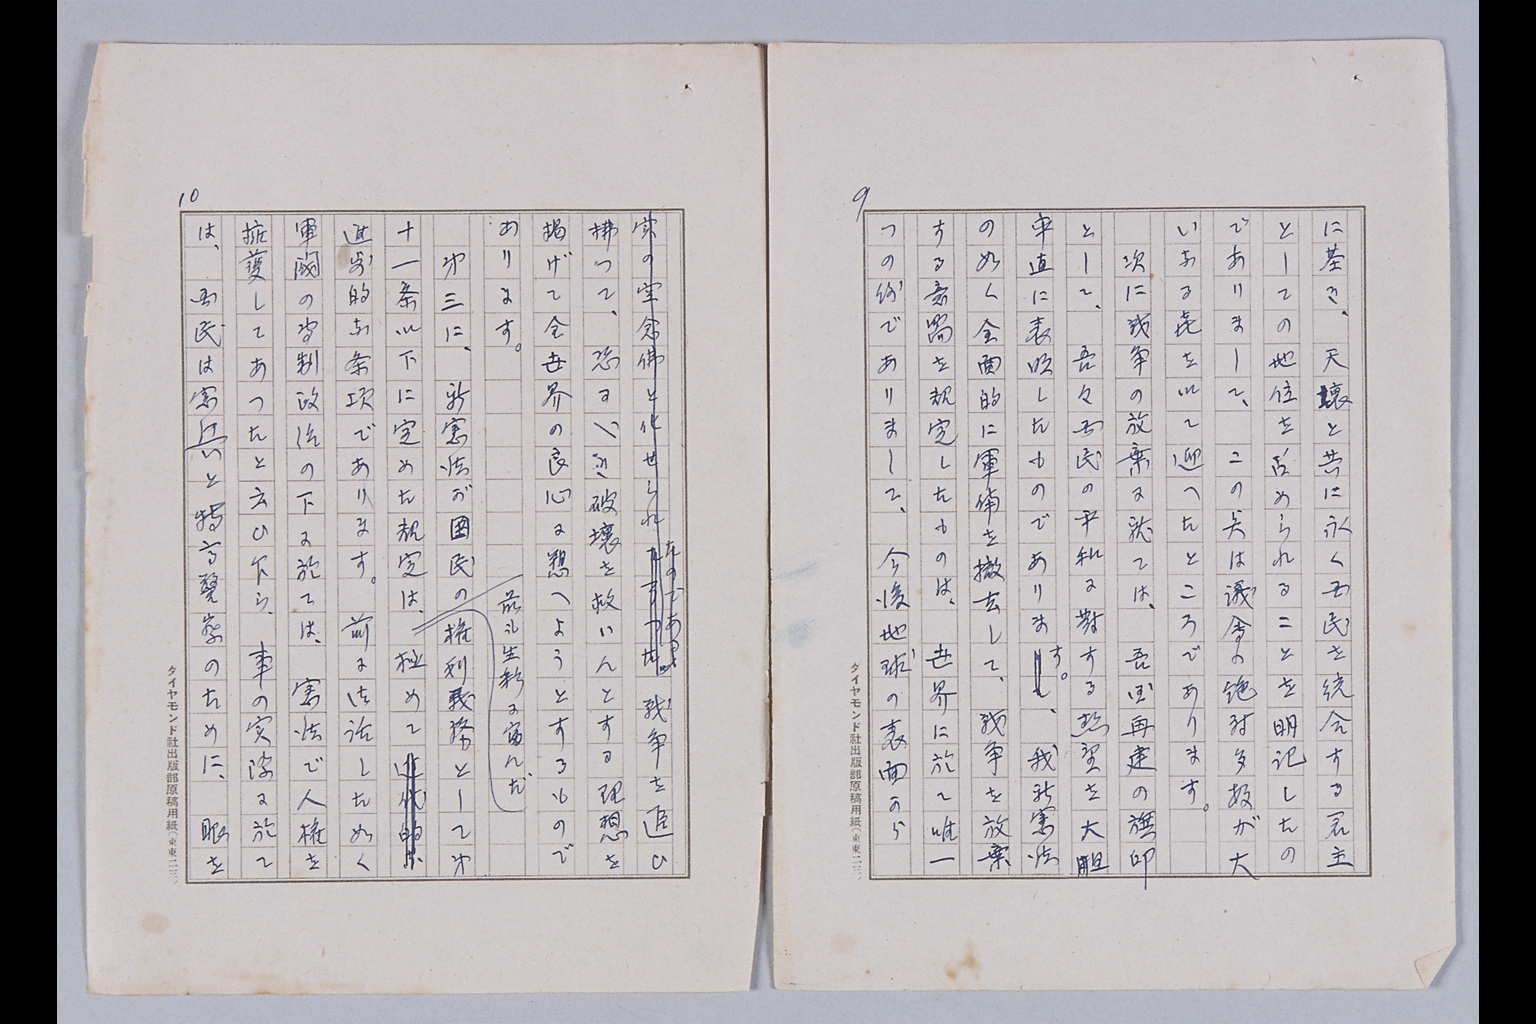 9
に基き、天壌と共に永く国民を統合する君主
としての地位を認められることを明記したの
でありまして、この点は議会の絶対多数が大
いなる意を以て迎へたところであります。
次に戦争の放棄に就ては、吾国再建の旗印
として、吾々国民の平和に対する熱望を大胆
率直に表明したものであります。、我新憲法
のめく全面的に軍備を撤去して、戦争を放棄
する意図を規定したものは、世界に於て唯一
つの例でありまして、今後地球の表面から
ダイヤモンド社出版部原稿用紙(東東二三)
10
戦争を追ひ
拂つて、恐るべき破壊を救いんとする理想を
掲げて全世界の良心に愬へようとするもので
あります。
第三に、新憲法が国民の権利義務として第
十一条以下に定めた規定は、極めて
前に生彩に富んだ
進歩的な条項であります。前に法話しためく
軍閥の専制政治の下に於ては、憲法で人権を
擁護してあつたと云ひ乍ら、事の実際に於て
は、国民は憲兵と特高警察のために、眼を
ダイヤモンド社出版部原稿用紙(東東二三)